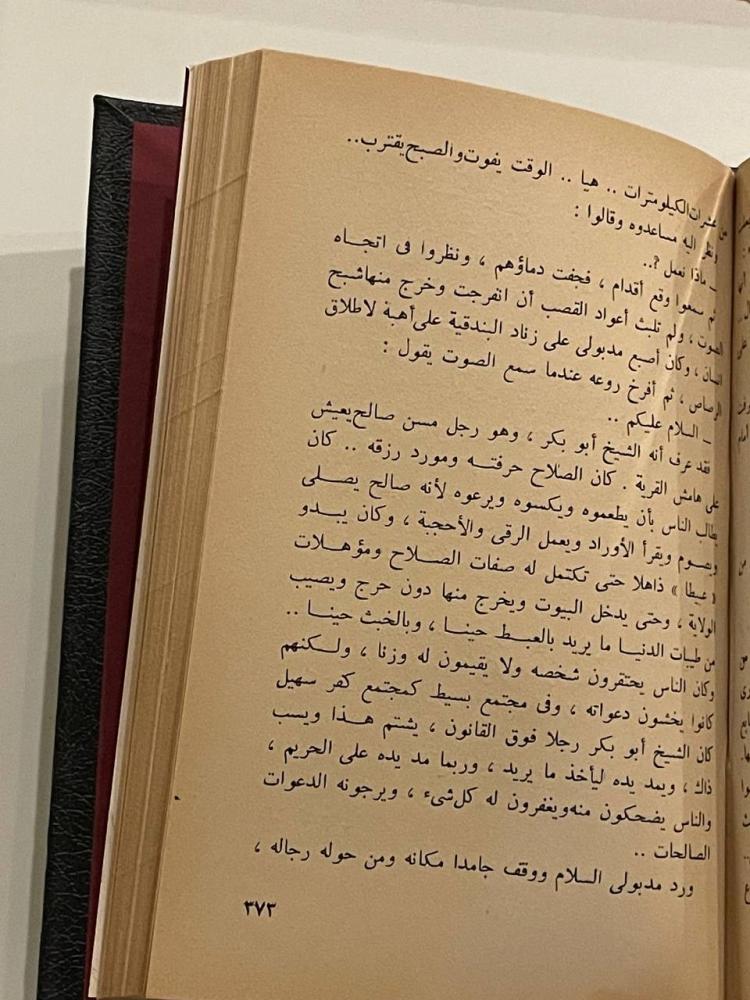 من عشرات الكيلومترات .. هيا .. الوقت يفوت والصبح يقترب..
ونظر اليه مساعدوه وقالوا :
ــ ماذا نعمل ؟..
ثم سمعوا وقع أقدام ، فجفت دماؤهم ، ونظروا فى اتجـاه
الصوت ، ولم تلبث أعواد القصب أن انفرجت وخرج منها شبح
انسان ، وكان أصبع مدبولى على زناد البندقية على أهبة لاطلاق
الرصاص ، ثم أفرخ روعه عندما سمع الصوت يقول :
ــ السلام عليكم ..
فقد عرف أنه الشيخ أبو بكر ، وهو رجل مسن صالح يعيش
على هامش القرية . كان الصلاح حرفتـه ومورد رزقه .. كان
يطالب الناس بأن يطعموه ويكسوه ويرعوه لأنه صالح يصـلى
ويصوم ويقرأ الأوراد ويعمل الرقى والأحجبة ، وكان يبـدو
« عبيطا » ذاهلا حتى تكتمل له صفات الصـلاح ومؤهـلات
الولاية ، وحتى يدخل البيوت ويخرج منها دون حرج ويصيب
من طيبات الدنيـا ما يريد بالعبـط حينـا ، وبالخبث حينـا ..
وكان الناس يحتقرون شخصه ولا يقيمون له وزنا ، ولـكنهم
كانوا يخشون دعواته ، وفى مجتمع بسيط كمجتمع كفر سهيل
كان الشيخ أبو بكر رجلا فوق القانون ، يشتم هـذا ويسب
ذاك ، ويمد يده ليأخذ ما يريد ، وربما مد يده على الحريم ،
والناس يضحكون منه ويغفرون له كل شىء ، ويرجونه الدعوات
الصالحات ..
ورد مدبولى السلام ووقف جامدا مكانه ومن حوله رجاله ،
٣٧٣